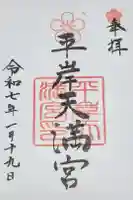 奉拝
平岸天満宮
令和七年一月十九日